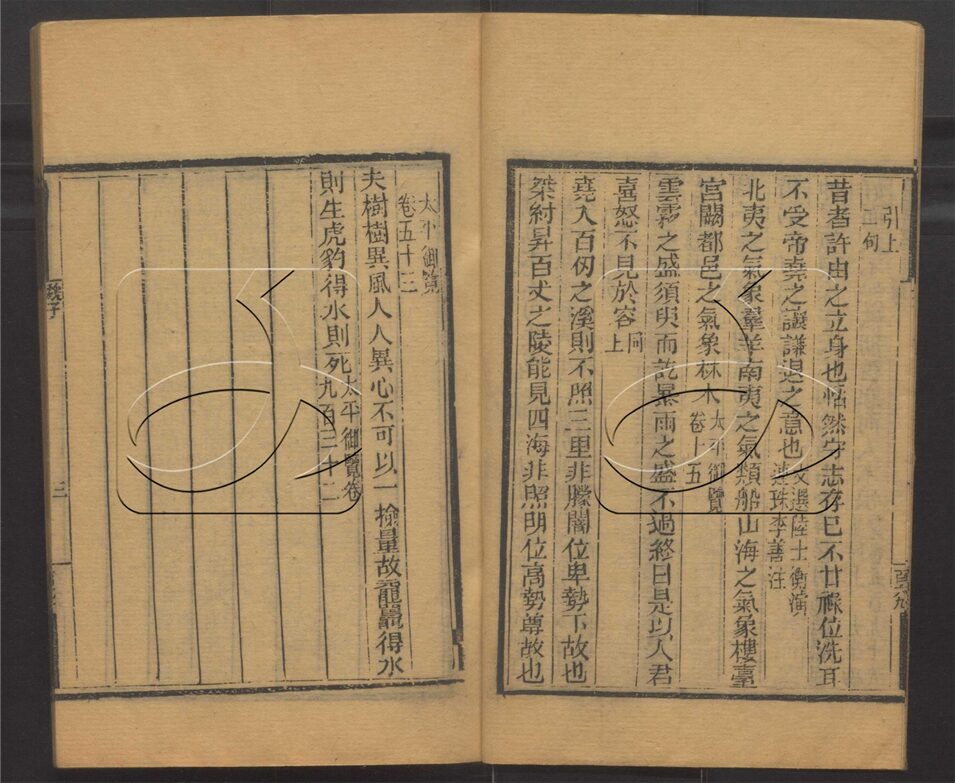 引上
二句
昔者許由之立身也恬然守志存己不甘祿位洗耳
不受帝堯之讓謙退之意也文選陸士衡演
連珠李善注
北夷之氣象羣羊南夷之氣類船山海之氣象樓臺
宮闕都邑之氣象林木太平御覽
卷十五
雲霧之盛須臾而訖暴雨之盛不過終日是以人君
喜怒不見於容同
上
堯入百仞之溪則不照三里非朦闇位卑勢下故也
桀紂昇百丈之陵能見四海非照明位高勢尊故也
太平御覽
卷五十三
夫樹樹異風人人異心不可以一檢量故黿鼉得水
則生虎豹得水則死太平御覽卷
九百三十二
魏子